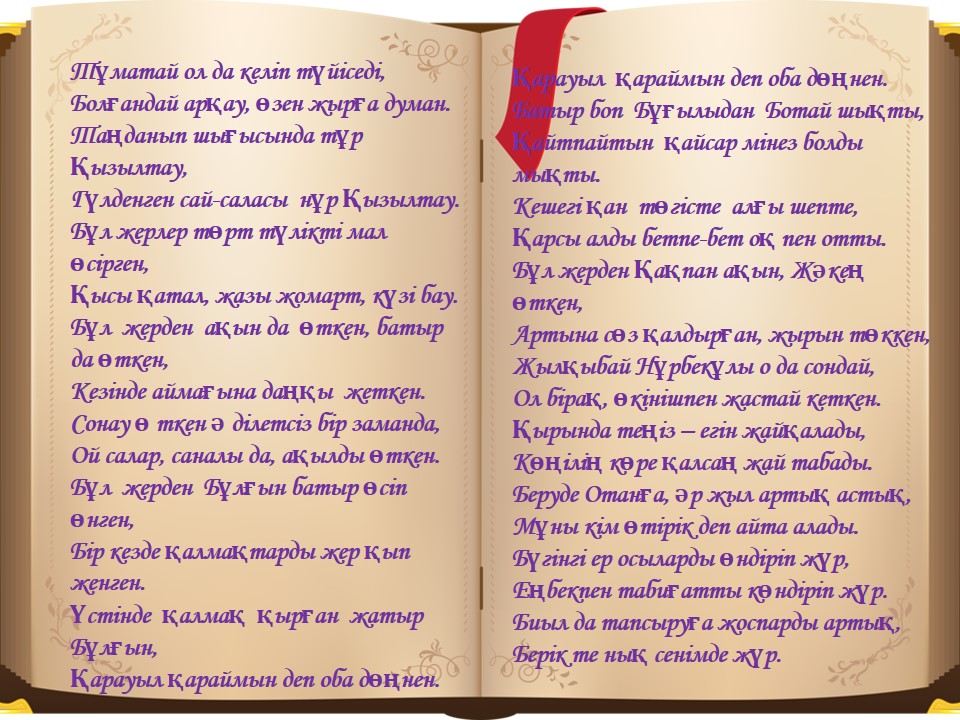 Тұматай ол да келіп түйіседі,
Болғандай арқау, өзен жырға думан.
Таңданып шығысында тұр
Қызылтау,
Гүлденген сай-саласы нұр Қызылтау.
Бұл жерлер төрт түлікті мал
өсірген,
Қысы қатал, жазы жомарт, күзі бау.
Бұл жерден ақын да өткен, батыр
да өткен,
Кезінде аймағына даңқы жеткен.
Сонау ө ткен ә ділетсіз бір заманда,
Ой салар, саналы да, ақылды өткен.
Бұл жерден Бұлғын батыр өсіп
өнген,
Бір кезде қалмақтарды жер қып
женген.
Үстінде қалмақ қырған жатыр
Бұлғын,
Қарауыл қараймын деп оба дөңнен.
Қарауыл қараймын деп оба дөңнен.
Батыр боп Бұғылыдан Ботай шықты,
Қайтпайтын қайсар мінез болды
мықты.
Кешегі қан төгісте алғы шепте,
Қарсы алды бетпе-бет оқ пен отты.
Бұл жерден Қақпан ақын, Жәкең
өткен,
Артына сөз қалдырған, жырын төккен,
Жылқыбай Нұрбекұлы о да сондай,
Ол бірақ, өкінішпен жастай кеткен.
Қырында теңіз – егін жайқалады,
Көңілің көре қалсаң жай табады.
Беруде Отанға, әр жыл артық астық,
Мұны кім өтірік деп айта алады.
Бүгінгі ер осыларды өндіріп жүр,
Еңбекпен табиғатты көндіріп жүр.
Биыл да тапсыруға жоспарды артық,
Берік те нық сенімде жүр.